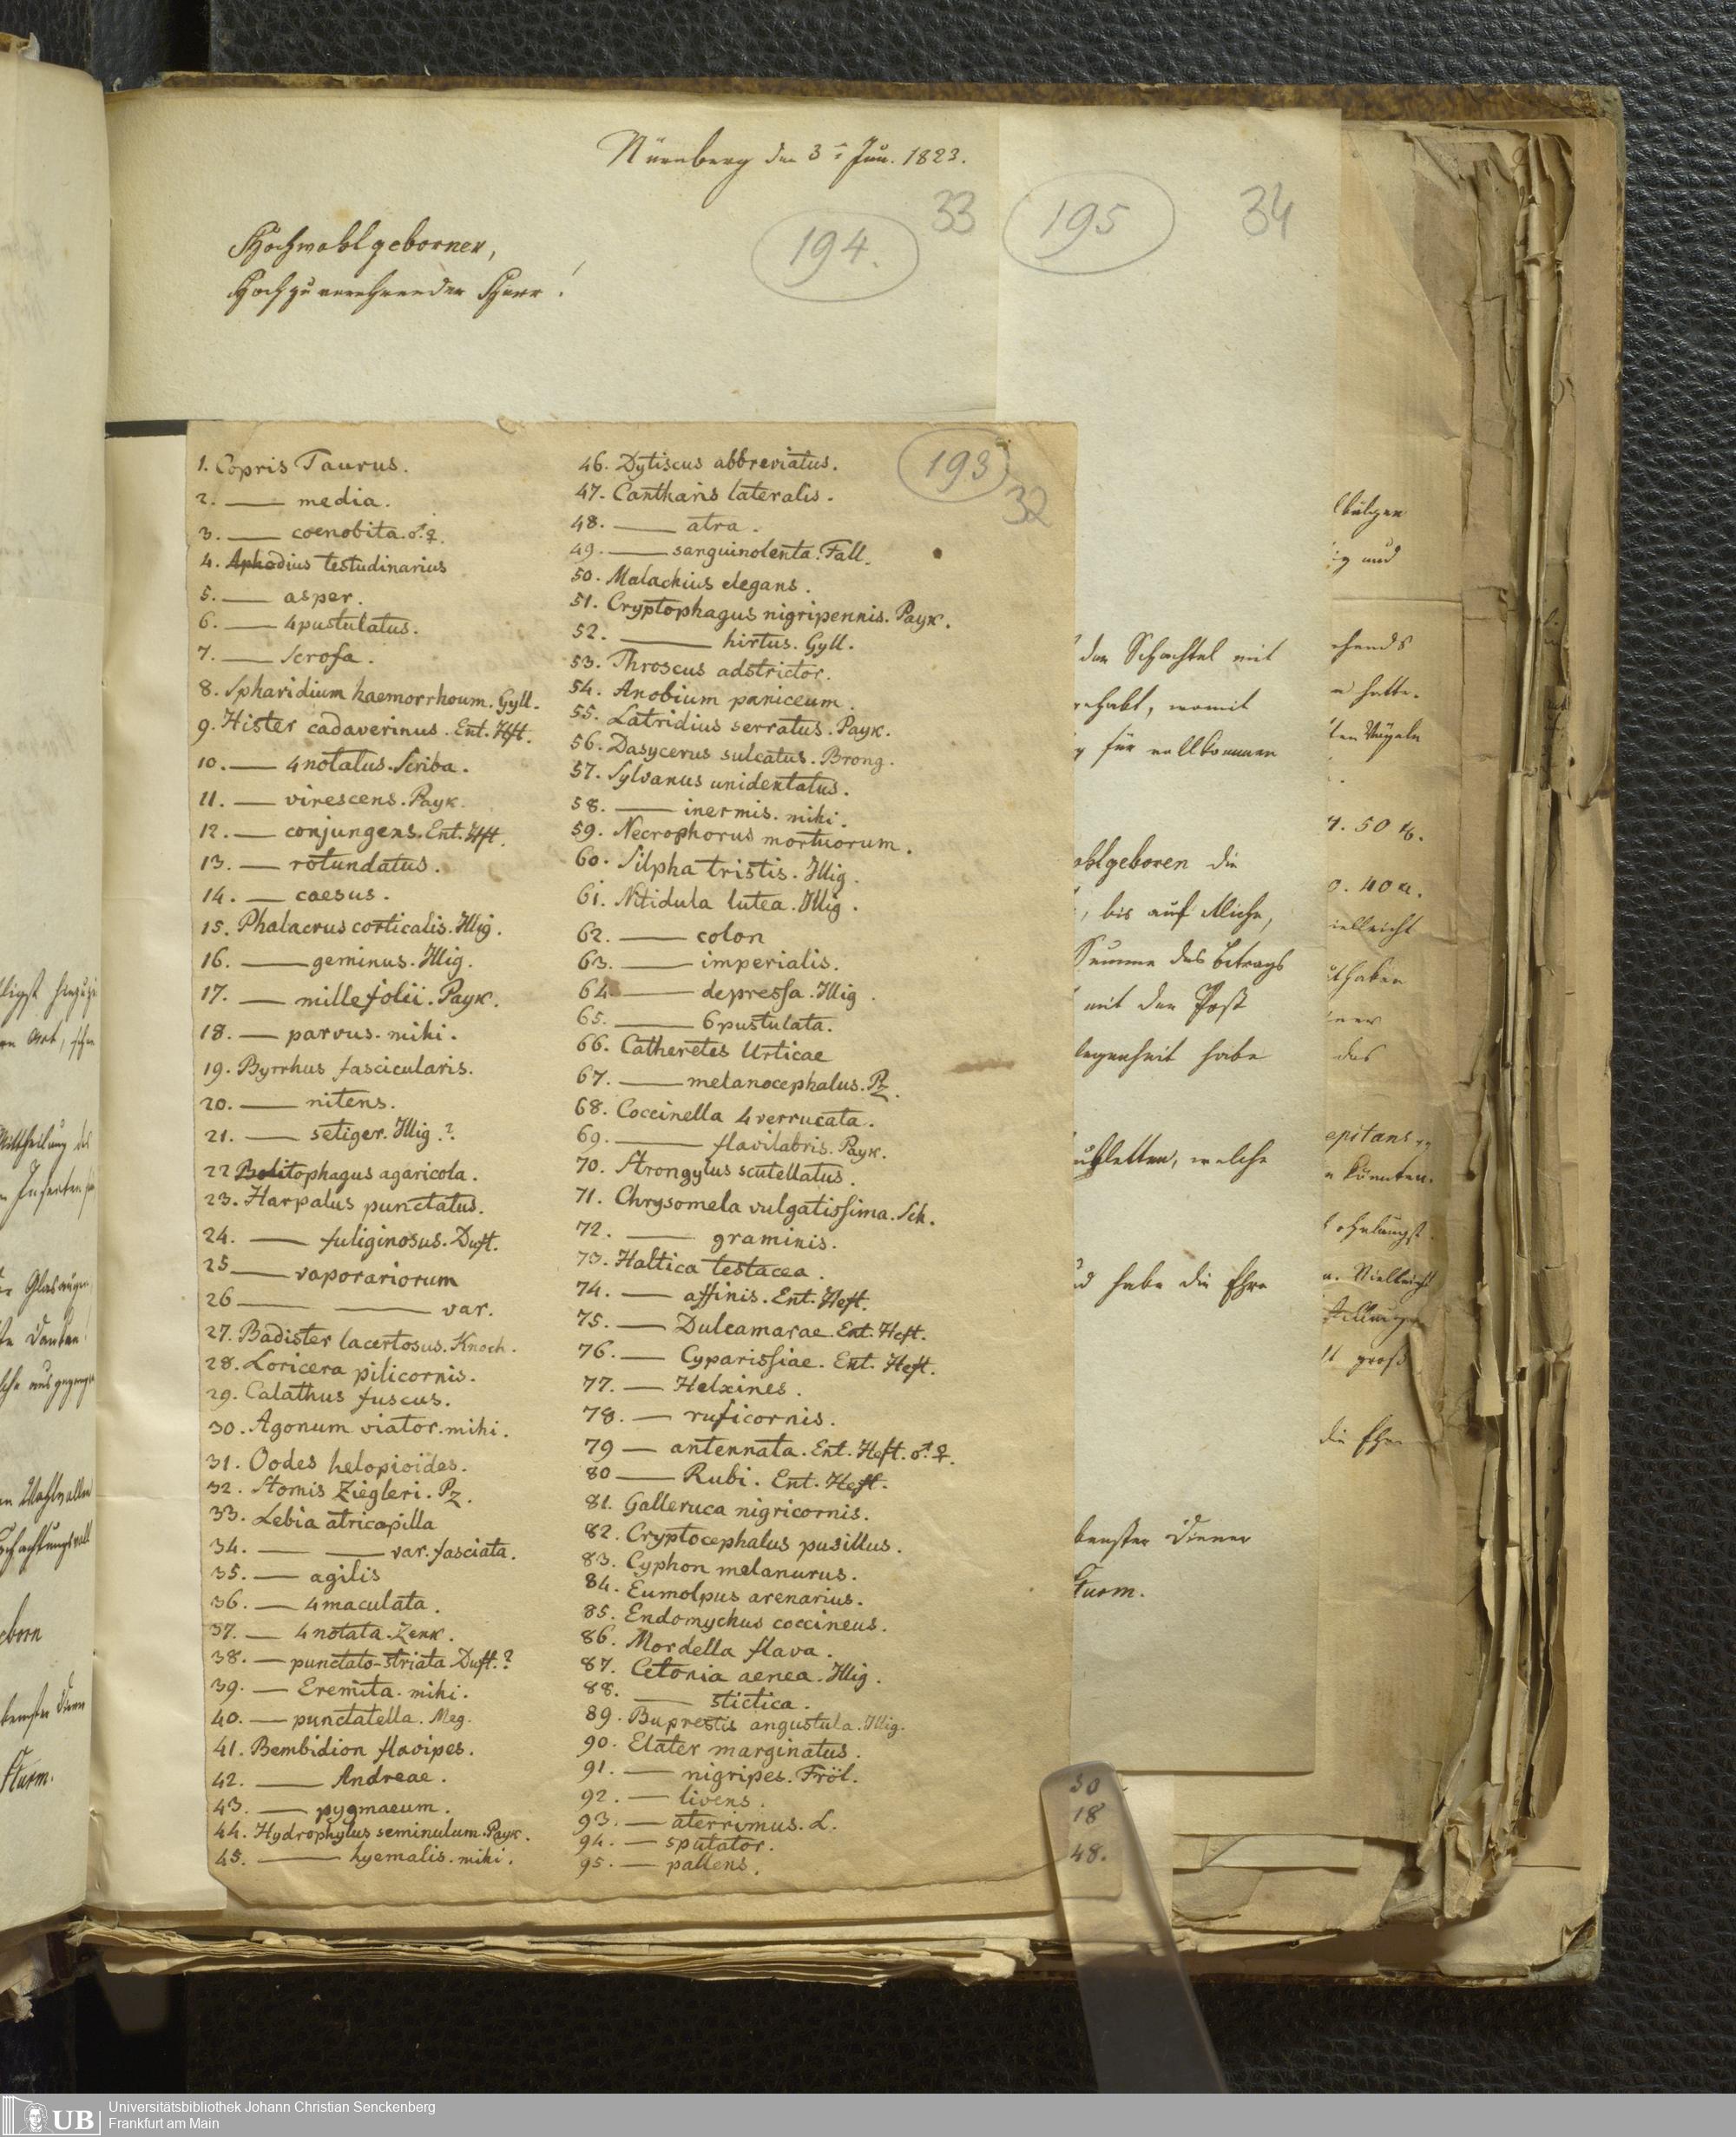 Nürnberg den 3t Jun. 1823.
33
194.
195
34
Hochwohlgeborner,
Hochzuverehrender Herr!
193
32
1. Copris Taurus.
2. — media.
3. — coenobita. ♂. ♀.
4. Aphodius testudinarius
5. — asper.
6. — 4pustulatus.
7. — Scrofa.
8. Spharidium haemorrhoum. Gyll.
9. Hister cadaverinus. Ent. Hft.
10. — 4notatus. Scriba.
11. — virescens. Payk.
12. — conjungens. Ent. Hft.
13. — rotundatus.
14. — caesus.
15. Phalacrus corticalis. Illig.
16. — geminus. Illig.
17. — millefolii. Payk.
18. — parvus. mihi.
19. Byrrhus fascicularis.
20. — nitens.
21. — setiger. Illig.?
22 Bolitophagus agaricola.
23. Harpalus punctatus.
24. — fuliginosus. Duft.
25 — vaporariorum
26 — — var.
27. Badister lacertosus. Knoch.
28. Loricera pilicornis.
29. Calathus fuscus.
30. Agonum viator. mihi.
31. Oodes helopioides.
32. Stomis Ziegleri. Pz.
33. Lebia atricapilla
34. — — var. fasciata.
35. — agilis
36. — 4maculata.
37. — 4notata. Zenk.
38. — punctato-striata. Duft.?
39. — Eremita. mihi.
40. — punctatella. Meg.
41. Bembidion flavipes.
42. — Andreae.
43. — pygmaeum.
44. Hydrophylus seminulum. Payk.
45. — hyemalis. mihi.
46. Dytiscus abbreviatus.
47. Cantharis lateralis.
48. — atra.
49. — sanguinolenta. Fall.
50. Malachius elegans.
51. Cryptophagus nigripennis. Payk.
52. — hirtus. Gyll.
53. Throscus adstrictor.
54. Anobium paniceum.
55. Latridius serratus. Payk.
56. Dasycerus sulcatus. Brong.
57. Sylvanus unidentatus.
58. — inermis. mihi.
59. Necrophorus mortuorum.
60. Silpha tristis. Illig.
61. Nitidula lutea. Illig.
62. — colon
63. — imperialis.
64 — depressa. Illig.
65. — 6pustulata.
66. Catheretes Urticae
67. — melanocephalus. Pz.
68. Coccinella 4verrucata.
69. — flavilabris. Payk.
70. Strongylus scutellatus.
71. Chrysomela vulgatissima. Sch.
72. — graminis.
73. Haltica testacea.
74. — affinis. Ent. Heft.
75. — Dulcamarae. Ent. Heft.
76. — Cyparissiae. Ent. Heft.
77. — Helxines.
78. — ruficornis.
79 — antennata. Ent. Heft. ♂. ♀.
80 — Rubi. Ent. Heft.
81. Galleruca nigricornis.
82. Cryptocephalus pusillus.
83. Cyphon melanurus.
84. Eumolpus arenarius.
85. Endomychus coccineus.
86. Mordella flava.
87. Cetonia aenea. Illig.
88. — stictica.
89. Buprestis angustula. Illig.
90. Elater marginatus.
91. — nigripes. Fröl.
92. — livens.
93. — aterrimus. L.
94. — sputator.
95. — pallens.
der Schachtel mit
gehabt, womit
für vollkommen
ohlgeboren die
, bis auf Miche,
Summe des Betrags
mit der Post
legenheit habe
ubletten, welche
nd habe die Ehre
benster Diener
Sturm.
und
hatte.
ten Vögeln
50 k.
40 x.
ielleicht
uthaben
das
epitans
könnten.
ohnlängst
Vielleicht
groß
die Ehre
30
18
48.
Mittheilung des
Glasaugen
eborn
Sturm.
UB
Universitätsbibliothek Johann Christian Senckenberg
Frankfurt am Main